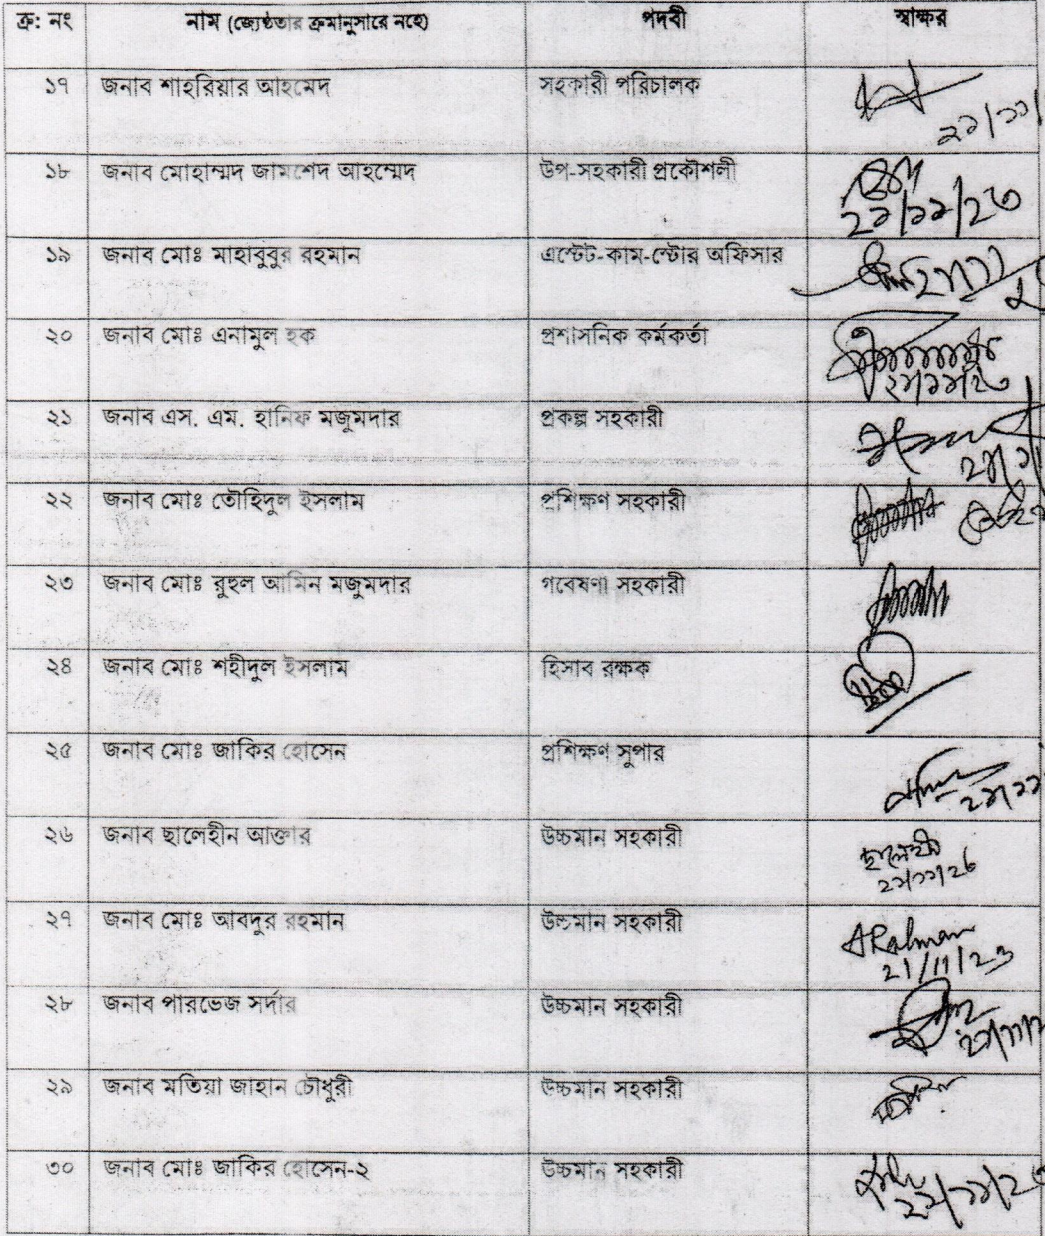 ক্র: নং নাম (জ্যেষ্ঠতার ক্রমানুসারে নহে) পদবী স্বাক্ষর
১৭ জনাব শাহরিয়ার আহমেদ সহকারী পরিচালক
২১/১১/
১৮ জনাব মোহাম্মদ জামশেদ আহম্মেদ উপ-সহকারী প্রকৌশলী
২১/১১/২৩
১৯ জনাব মোঃ মাহাবুবুর রহমান এস্টেট-কাম-স্টোর অফিসার
২০ জনাব মোঃ এনামুল হক প্রশাসনিক কর্মকর্তা
২১/১১/২৩
২১ জনাব এস. এম. হানিফ মজুমদার প্রকল্প সহকারী
২২ জনাব মোঃ তৌহিদুল ইসলাম প্রশিক্ষণ সহকারী
২৩ জনাব মোঃ রুহুল আমিন মজুমদার গবেষণা সহকারী
২৪ জনাব মোঃ শহীদুল ইসলাম হিসাব রক্ষক
২৫ জনাব মোঃ জাকির হোসেন প্রশিক্ষণ সুপার
২১/১১
২৬ জনাব ছালেহীন আক্তার উচ্চমান সহকারী
২১/১১/২৩
২৭ জনাব মোঃ আবদুর রহমান উচ্চমান সহকারী
ARahman
21/11/23
২৮ জনাব পারভেজ সর্দার উচ্চমান সহকারী
২৯ জনাব মতিয়া জাহান চৌধুরী উচ্চমান সহকারী
৩০ জনাব মোঃ জাকির হোসেন-২ উচ্চমান সহকারী
২১/১১/২৩